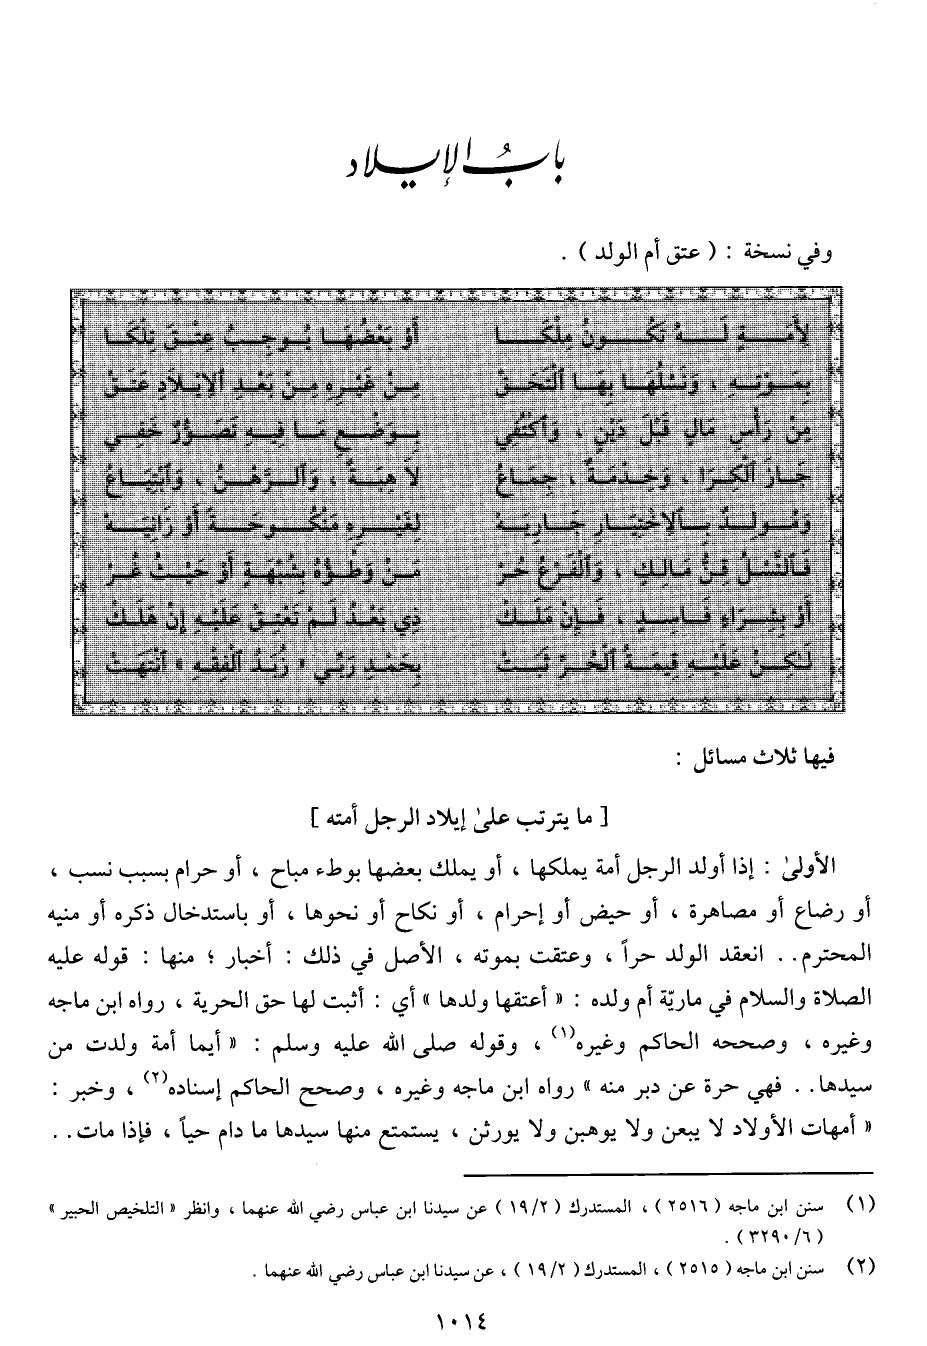 بابُ الإيلاد
وفي نسخة : ( عتق أم الولد ) .
لِأَمَـــةٍ لَـــهُ تَكُـــونُ مِلْكَـــا أَوْ بَعْضُهَـا يُـوجِـبُ عِتْـقَ تِلْكَـا
بِمَـوْتِـهِ ، وَنَسْلُهَـا بِهَـا ٱلْتَحَـقْ مِـنْ غَيْرِهِ مِـنْ بَعْـدِ ٱلإِيْـلاَدِ عَتَـقْ
مِنْ رَأْسِ مَالٍ قَبْلَ دَيْنٍ ، وَٱكْتُفِي بِـوَضْـعِ مَـا فِيـهِ تَصَـوُّرٌ خَفِـي
جَـازَ ٱلْكِـرَا ، وَخِـدْمَـةٌ ، جِمَـاعُ لاَ هِبَـةٌ ، وَٱلـرَّهْـنُ ، وَٱبْتِيَـاعُ
وَمُـولِـدٌ بِـٱلاِخْتِيَـارِ جَـارِيَـهْ لِغَيْـرِهِ مَنْكُـوحَـةً أَوْ زَانِيَـهْ
فَـٱلنَّسْـلُ قِـنُّ مَـالِـكٍ ، وَٱلْفَـرْعُ حُـرْ مَـنْ وَطْـؤُهُ بِشُبْهَـةٍ أَوْ حَيْـثُ غُـرْ
أَوْ بِشِـرَاءٍ فَـاسِـدٍ ، فَـإِنْ مَلَـكْ ذِي بَعْـدُ لَـمْ تَعْتِـقْ عَلَيْـهِ إِنْ هَلَـكْ
لَـٰكِـنْ عَلَيْـهِ قِيمَـةُ ٱلْحُـرِّ ثَبَـتْ بِحَمْدِ رَبِّي « زُبَدُ ٱلْفِقْهِ » ٱنْتَهَتْ
فيها ثلاث مسائل :
[ ما يترتب علىٰ إيلاد الرجل أمته ]
الأولىٰ : إذا أولد الرجل أمة يملكها ، أو يملك بعضها بوطء مباح ، أو حرام بسبب نسب ،
أو رضاع أو مصاهرة ، أو حيض أو إحرام ، أو نكاح أو نحوها ، أو باستدخال ذكره أو منيه
المحترم . . انعقد الولد حراً ، وعتقت بموته ، الأصل في ذلك : أخبار ؛ منها : قوله عليه
الصلاة والسلام في ماريّة أم ولده : « أعتقها ولدها » أي : أثبت لها حق الحرية ، رواه ابن ماجه
وغيره ، وصححه الحاكم وغيره(١) ، وقوله صلى الله عليه وسلم : « أيما أمة ولدت من
سيدها . . فهي حرة عن دبر منه » رواه ابن ماجه وغيره ، وصحح الحاكم إسناده(٢) ، وخبر :
« أمهات الأولاد لا يبعن ولا يوهبن ولا يورثن ، يستمتع منها سيدها ما دام حياً ، فإذا مات . .
(١) سنن ابن ماجه ( ٢٥١٦ ) ، المستدرك ( ١٩/٢ ) عن سيدنا ابن عباس رضي الله عنهما ، وانظر « التلخيص الحبير »
( ٣٢٩٠/٦ ) .
(٢) سنن ابن ماجه ( ٢٥١٥ ) ، المستدرك ( ١٩/٢ ) ، عن سيدنا ابن عباس رضي الله عنهما .
١٠١٤